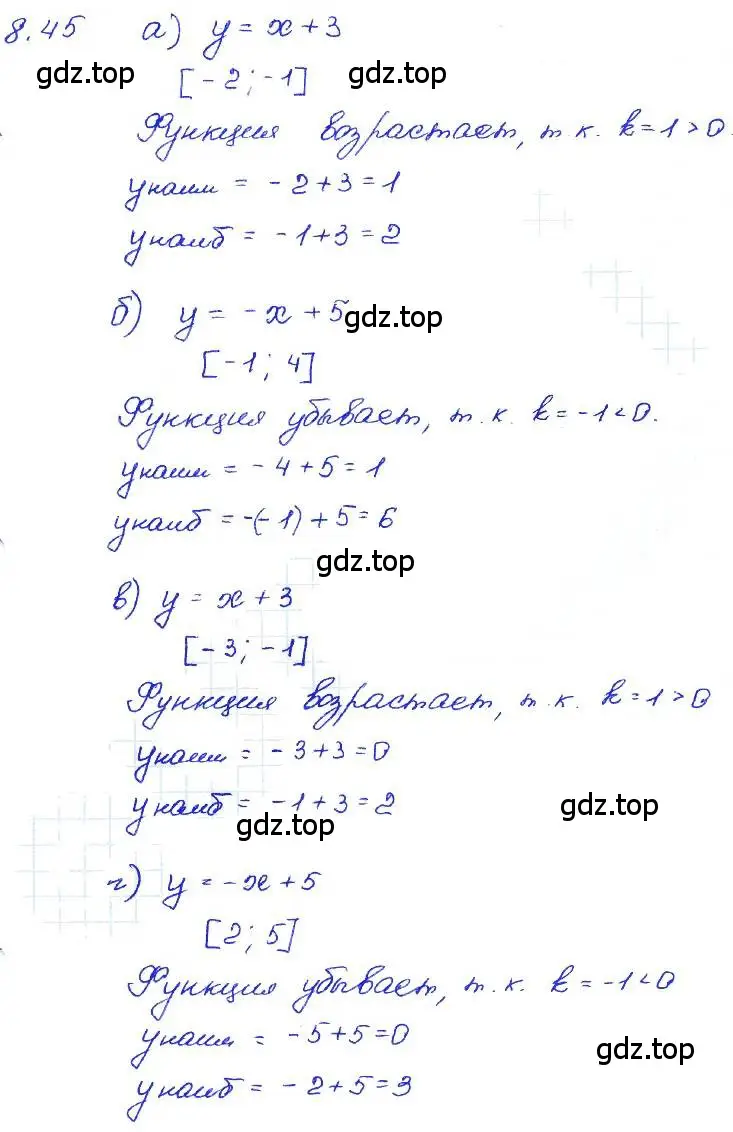 8.45 а) y = x + 3
gdz.top [-2; -1] gdz.top
Функция возрастает, т.к. k = 1 > 0.
yнаим = -2 + 3 = 1
yнаиб = -1 + 3 = 2
б) y = -x + 5
gdz.top
[-1; 4]
Функция убывает, т.к. k = -1 < 0.
yнаим = -4 + 5 = 1
yнаиб = -(-1) + 5 = 6
gdz.top
в) y = x + 3
[-3; -1]
Функция возрастает, т.к. k = 1 > 0
yнаим = -3 + 3 = 0
yнаиб = -1 + 3 = 2
gdz.top gdz.top
г) y = -x + 5
[2; 5]
Функция убывает, т.к. k = -1 < 0
yнаим = -5 + 5 = 0
gdz.top
yнаиб = -2 + 5 = 3